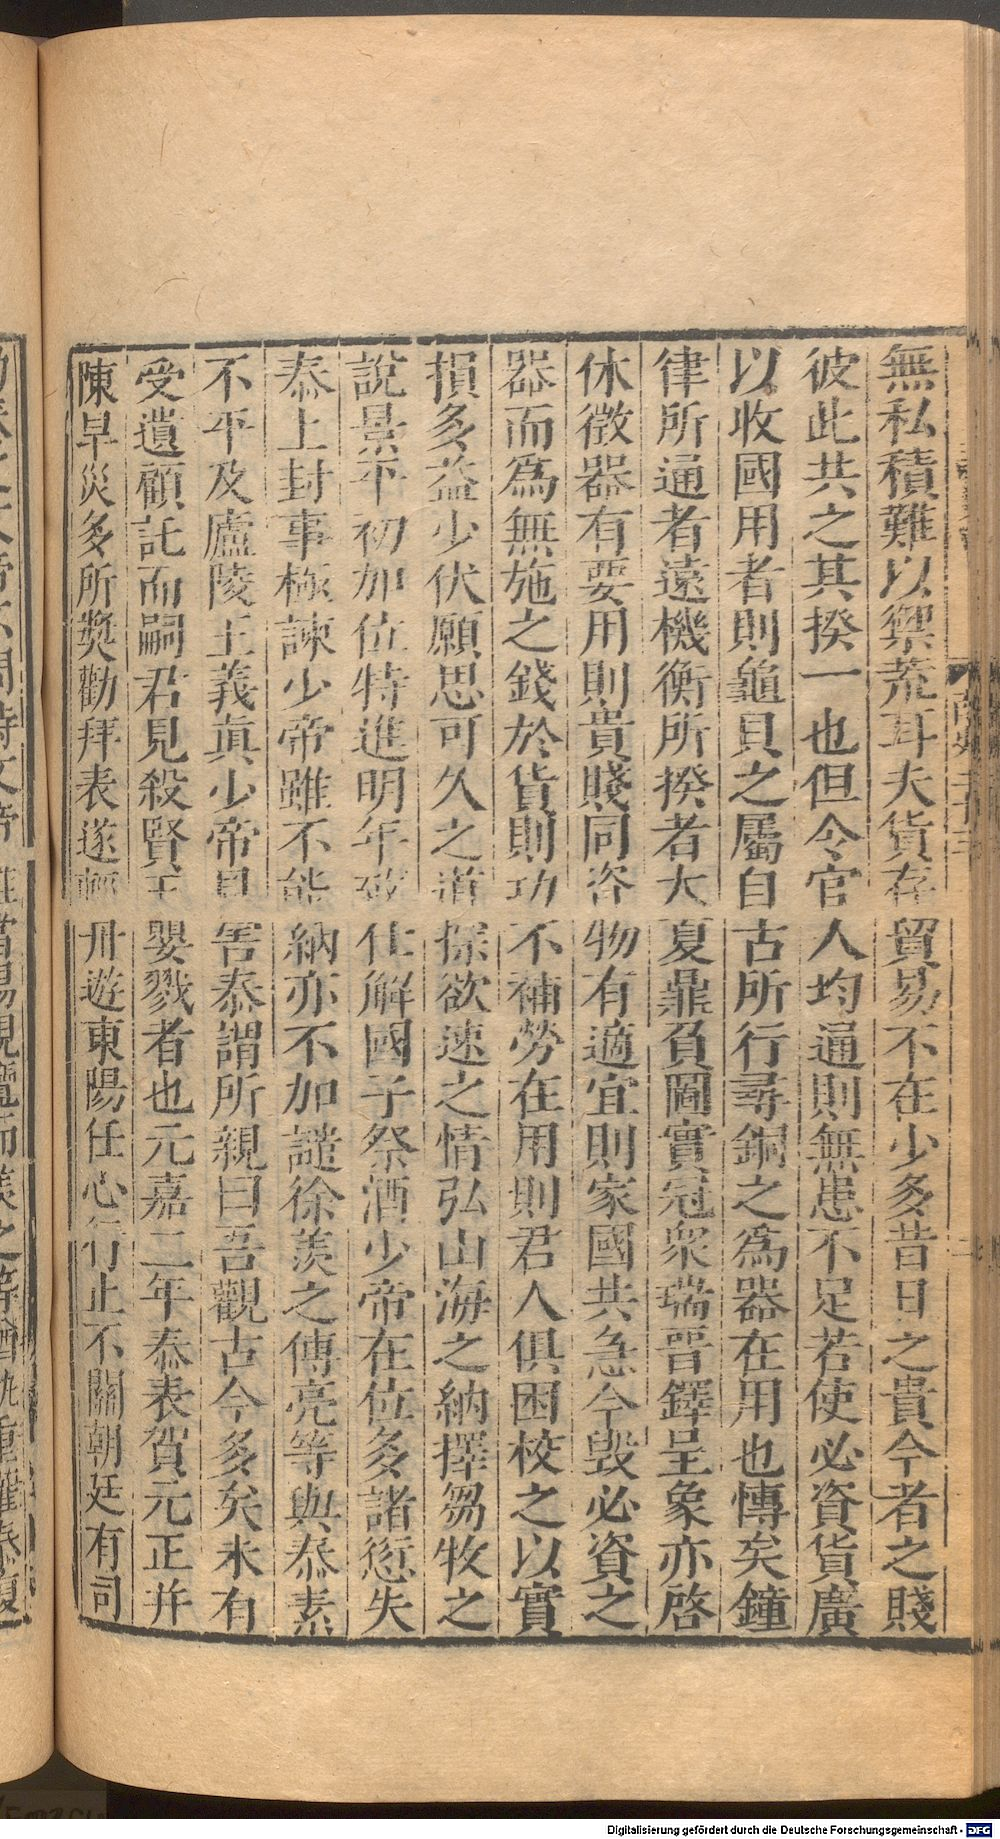 無私積難以禦荒耳夫貨存貿易不在少多昔日之貴今者之賤
彼此共之其揆一也但令官人均通則無患不足若使必資貨廣
以收國用者則龜貝之屬自古所行尋銅之爲器在用也博矣鐘
律所通者遠機衡所揆者大夏鼎負圖實冠衆瑞晋鐸呈象亦啓
休徵器有要用則貴賤同咨物有適宜則家國共急今毁必資之
器而爲無施之錢於貨則功不補勞在用則君人俱困校之以實
損多益少伏願思可久之道探欲速之情弘山海之納擇芻牧之
說景平初加位特進明年致仕解國子祭酒少帝在位多諸愆失
泰上封事極諫少帝雖不能納亦不加譴徐羨之傅亮等與泰素
不平及廬陵王義眞少帝見害泰謂所親曰吾觀古今多矣未有
受遺顧託而嗣君見殺賢王嬰戮者也元嘉二年泰表賀元正并
陳旱災多所奬勸拜表遂輕舟遊東陽任心行止不關朝廷有司
Digitalisierung gefördert durch die Deutsche Forschungsgemeinschaft - DFG